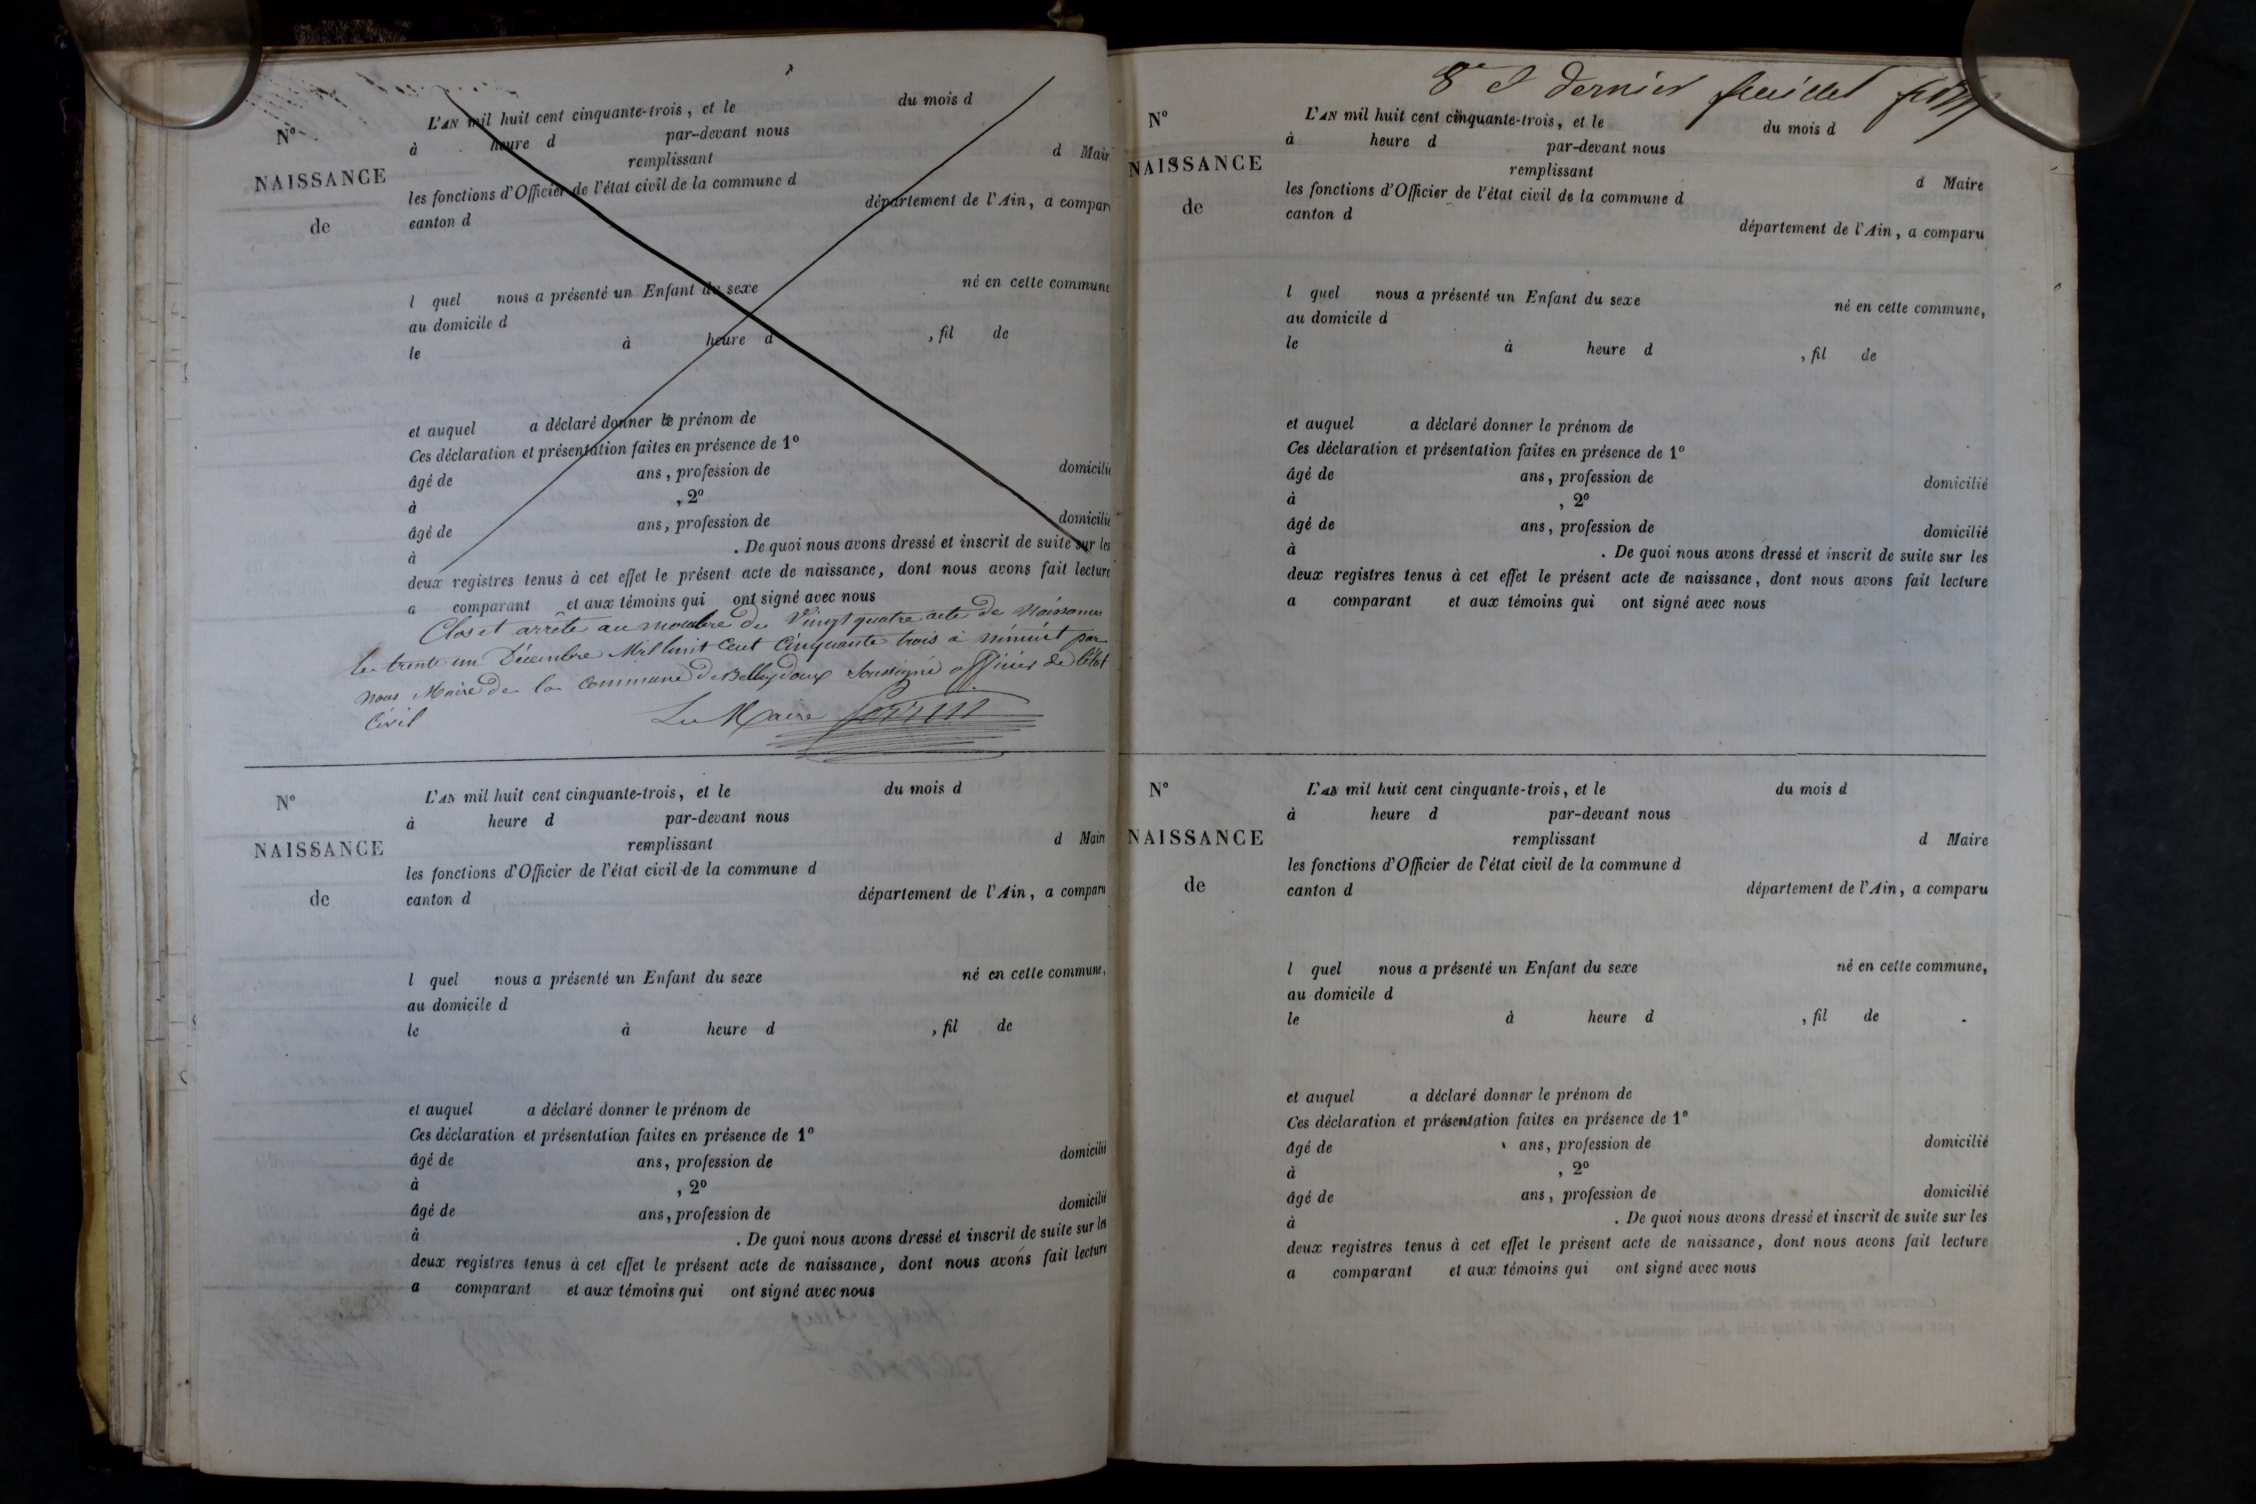 N°
NAISSANCE
de
L'AN mil huit cent cinquante-trois, et le du mois d
à heure d par-devant nous
remplissant d Mair
les fonctions d'Officier de l'état civil de la commune d
canton d département de l'Ain, a compar
l quel nous a présenté un Enfant du sexe né en cette commune
au domicile d
le à heure d , fil de
et auquel a déclaré donner le prénom de
Ces déclaration et présentation faites en présence de 1º
âgé de ans, profession de domicilié
à , 2º
âgé de ans, profession de domicilié
à . De quoi nous avons dressé et inscrit de suite sur les
deux registres tenus à cet effet le présent acte de naissance, dont nous avons fait lecture
a comparant et aux témoins qui ont signé avec nous
Clos et arrêté au nombre de Vingt quatre acte de Naissances
le trente un Décembre Mil huit Cent Cinquante trois à minuit par
nous Maire de la Commune de Belleydoux Soussigné officier de l'état
Civil
Le Maire
N°
NAISSANCE
de
L'AN mil huit cent cinquante-trois, et le du mois d
à heure d par-devant nous
remplissant d Mair
les fonctions d'Officier de l'état civil de la commune d
canton d département de l'Ain, a comparu
l quel nous a présenté un Enfant du sexe né en cette commune,
au domicile d
le à heure d , fil de
et auquel a déclaré donner le prénom de
Ces déclaration et présentation faites en présence de 1º
âgé de ans, profession de domicilié
à , 2º
âgé de ans, profession de domicilié
à . De quoi nous avons dressé et inscrit de suite sur les
deux registres tenus à cet effet le présent acte de naissance, dont nous avons fait lecture
a comparant et aux témoins qui ont signé avec nous
8e et dernier feuillet
N°
NAISSANCE
de
L'AN mil huit cent cinquante-trois, et le du mois d
à heure d par-devant nous
remplissant d Maire
les fonctions d'Officier de l'état civil de la commune d
canton d département de l'Ain, a comparu
l quel nous a présenté un Enfant du sexe né en cette commune,
au domicile d
le à heure d , fil de
et auquel a déclaré donner le prénom de
Ces déclaration et présentation faites en présence de 1º
âgé de ans, profession de domicilié
à , 2º
âgé de ans, profession de domicilié
à . De quoi nous avons dressé et inscrit de suite sur les
deux registres tenus à cet effet le présent acte de naissance, dont nous avons fait lecture
a comparant et aux témoins qui ont signé avec nous
N°
NAISSANCE
de
L'AN mil huit cent cinquante-trois, et le du mois d
à heure d par-devant nous
remplissant d Maire
les fonctions d'Officier de l'état civil de la commune d
canton d département de l'Ain, a comparu
l quel nous a présenté un Enfant du sexe né en cette commune,
au domicile d
le à heure d , fil de
et auquel a déclaré donner le prénom de
Ces déclaration et présentation faites en présence de 1º
âgé de ans, profession de domicilié
à , 2º
âgé de ans, profession de domicilié
à . De quoi nous avons dressé et inscrit de suite sur les
deux registres tenus à cet effet le présent acte de naissance, dont nous avons fait lecture
a comparant et aux témoins qui ont signé avec nous